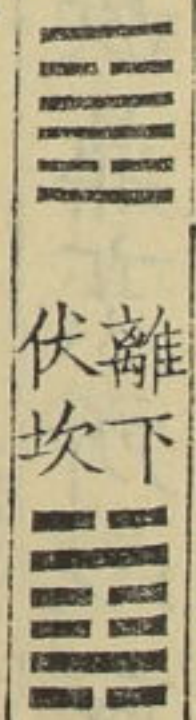 離下
伏坎